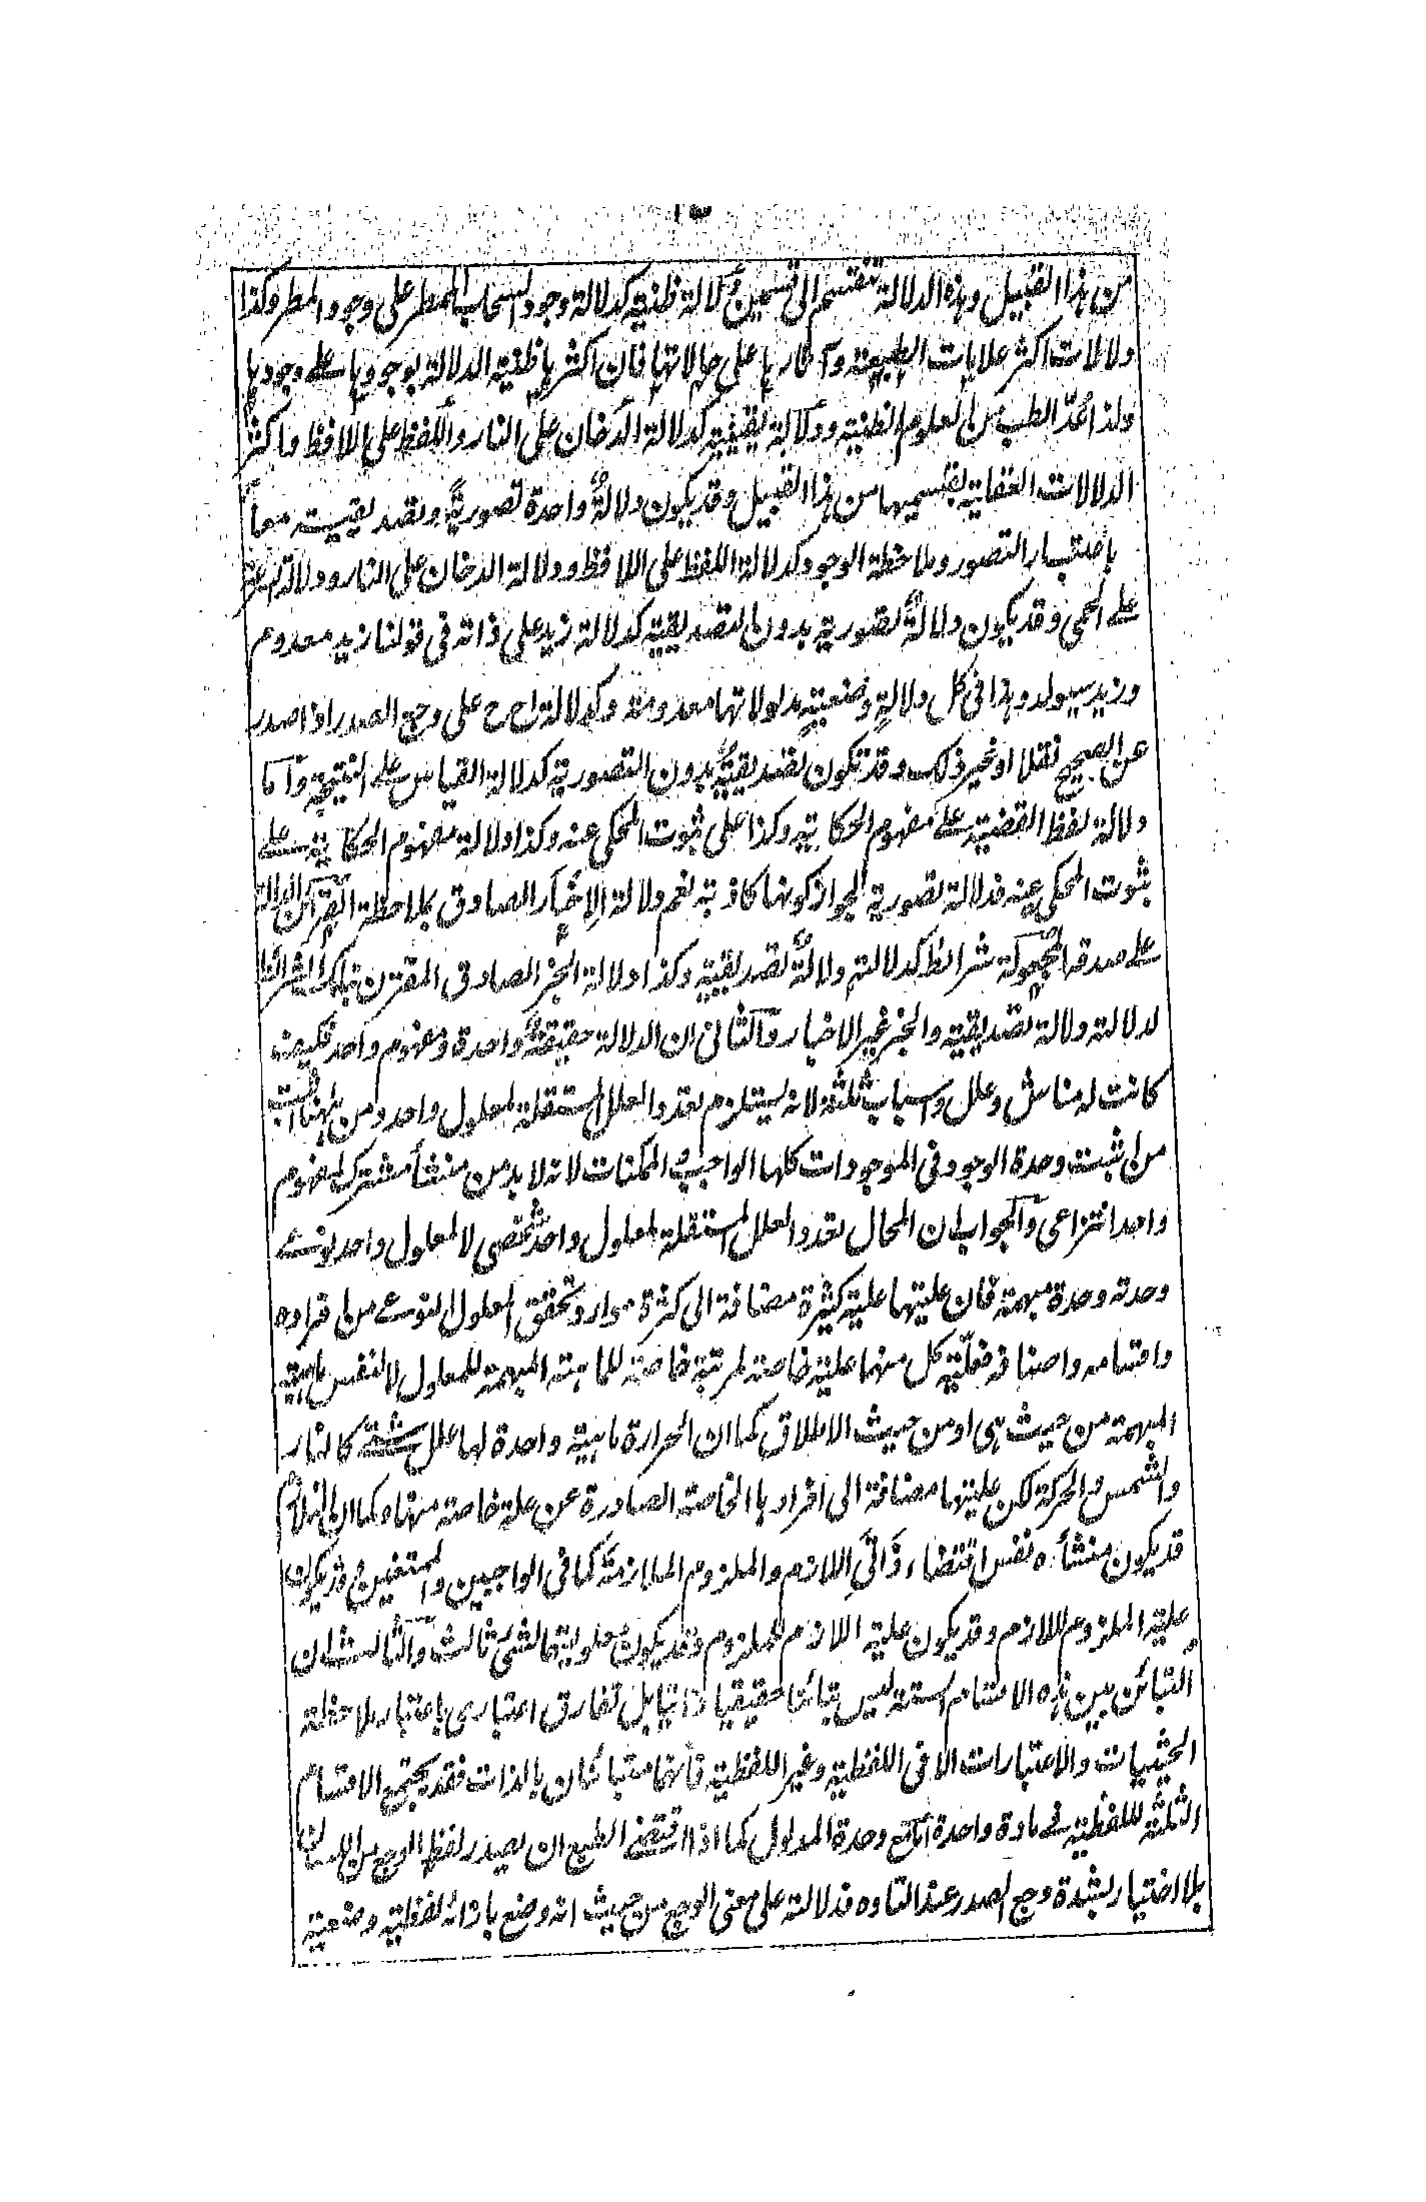 من هذا القبيل وهذه الدلالة تنقسم الى قسمين دلالة ظنية كدلالة وجود السحاب الممطر على وجود المطر وكذا
دلالات اكثر علامات الطبيعة وآثارها على حالاتها فان اكثرها ظنية الدلالة بوجودها على وجودها
ولذا عُدّ الطب من العلوم الظنية ودلالة يقينية كدلالة الدخان على النار واللفظ على اللافظ واكثر
الدلالات العقلية بقسميها من هذا القبيل وقد يكون دلالةٌ واحدة تصوريةً وتصديقيةً معاً
باعتبار التصور وملاحظة الوجود كدلالة اللفظ على اللافظ ودلالة الدخان على النار ودلالة
على الحمى وقد يكون دلالةٌ تصورية بدون التصديقية كدلالة زيد على ذاته فى قولنا زيد معدوم
وزيد سيولد وهذا فى كل دلالةٍ وضعيةٍ مدلولاتها معدومة وكدلالة اح اح على وجع الصدر اذا صدر
عن الصحيح نقلا او غير ذلك وقد تكون تصديقيةٌ بدون التصورية كدلالة القياس على النتيجة وآما
دلالة لفظ القضية على مفهوم الحكاية وكذا على ثبوت المحكى عنه وكذا دلالة مفهوم الحكاية على
ثبوت المحكى عنه فدلالة تصورية لجواز كونها كاذبة نعم دلالة الاخبار الصادق بملاحظة القرآئن الدالة
على صدقه شرائط كدلالته دلالةٌ تصديقية وكذا دلالة الخبر الصادق المقترن بتلك الشرائط
لدلالته دلالة تصديقية والخبر غير الاخبار وآلثانى ان الدلالة حقيقةٌ واحدة ومفهوم واحد فكيف
كانت له مناش وعلل واسباب ثلثة لانه يستلزم تعدد العلل المستقلة لمعلول واحد ومن ههنا اثبت
من اثبت وحدة الوجود فى الموجودات كلها الواجب والممكنات لانه لا بد من منشأ مشترك لمفهوم
واحد انتزاعى وآلجواب ان المحال تعدد العلل المستقلة لمعلول واحد شخصى لا لمعلول واحد نوعى
وحدته وحدة مبهمة فان عليتها علية كثيرة مضافة الى كثرة موارد تحقق المعلول النوعى من افراده
واقسامه واصنافه فعلّية كل منها علية خاصة لمرتبة خاصة للماهية المبهمة للمعلول لا لنفس ماهية
المبهمة من حيث هى او من حيث الاطلاق كما ان الحرارة ماهية واحدة لها علل شتى كالنار
والشمس والحركة لكن عليتها مضافة الى افرادها الخاصة الصادرة عن علة خاصة منها وكما ان التلازم
قد يكون منشأه نفس اقتضاء ذاتَى اللازم والملزوم الملازمة كما فى الواجبين والممتنعين وقد يكون
علية الملزوم للازم وقد يكون علية اللازم للملزوم وقد يكون معلوليتهما لشئ ثالث وآلثالث ان
التبائن بين هذه الاقسام الستة ليس تبائنا حقيقيا ذاتيا بل تفارق اعتبارى باعتبار ملاحظة
الحيثيات والاعتبارات الا فى اللفظية وغير اللفظية فانهما متبائنان بالذات فقد يجتمع الاقسام
الثلثة للفظية فى مادة واحدة مع وحدة المدلول كما اذا اقتضى الطبع ان يصدر لفظ الوجع من اللسان
بلا اختيار بشدة وجع الصدر عند التاوه فدلالته على معنى الوجع من حيث انه وضع بازائه لفظية وضعية